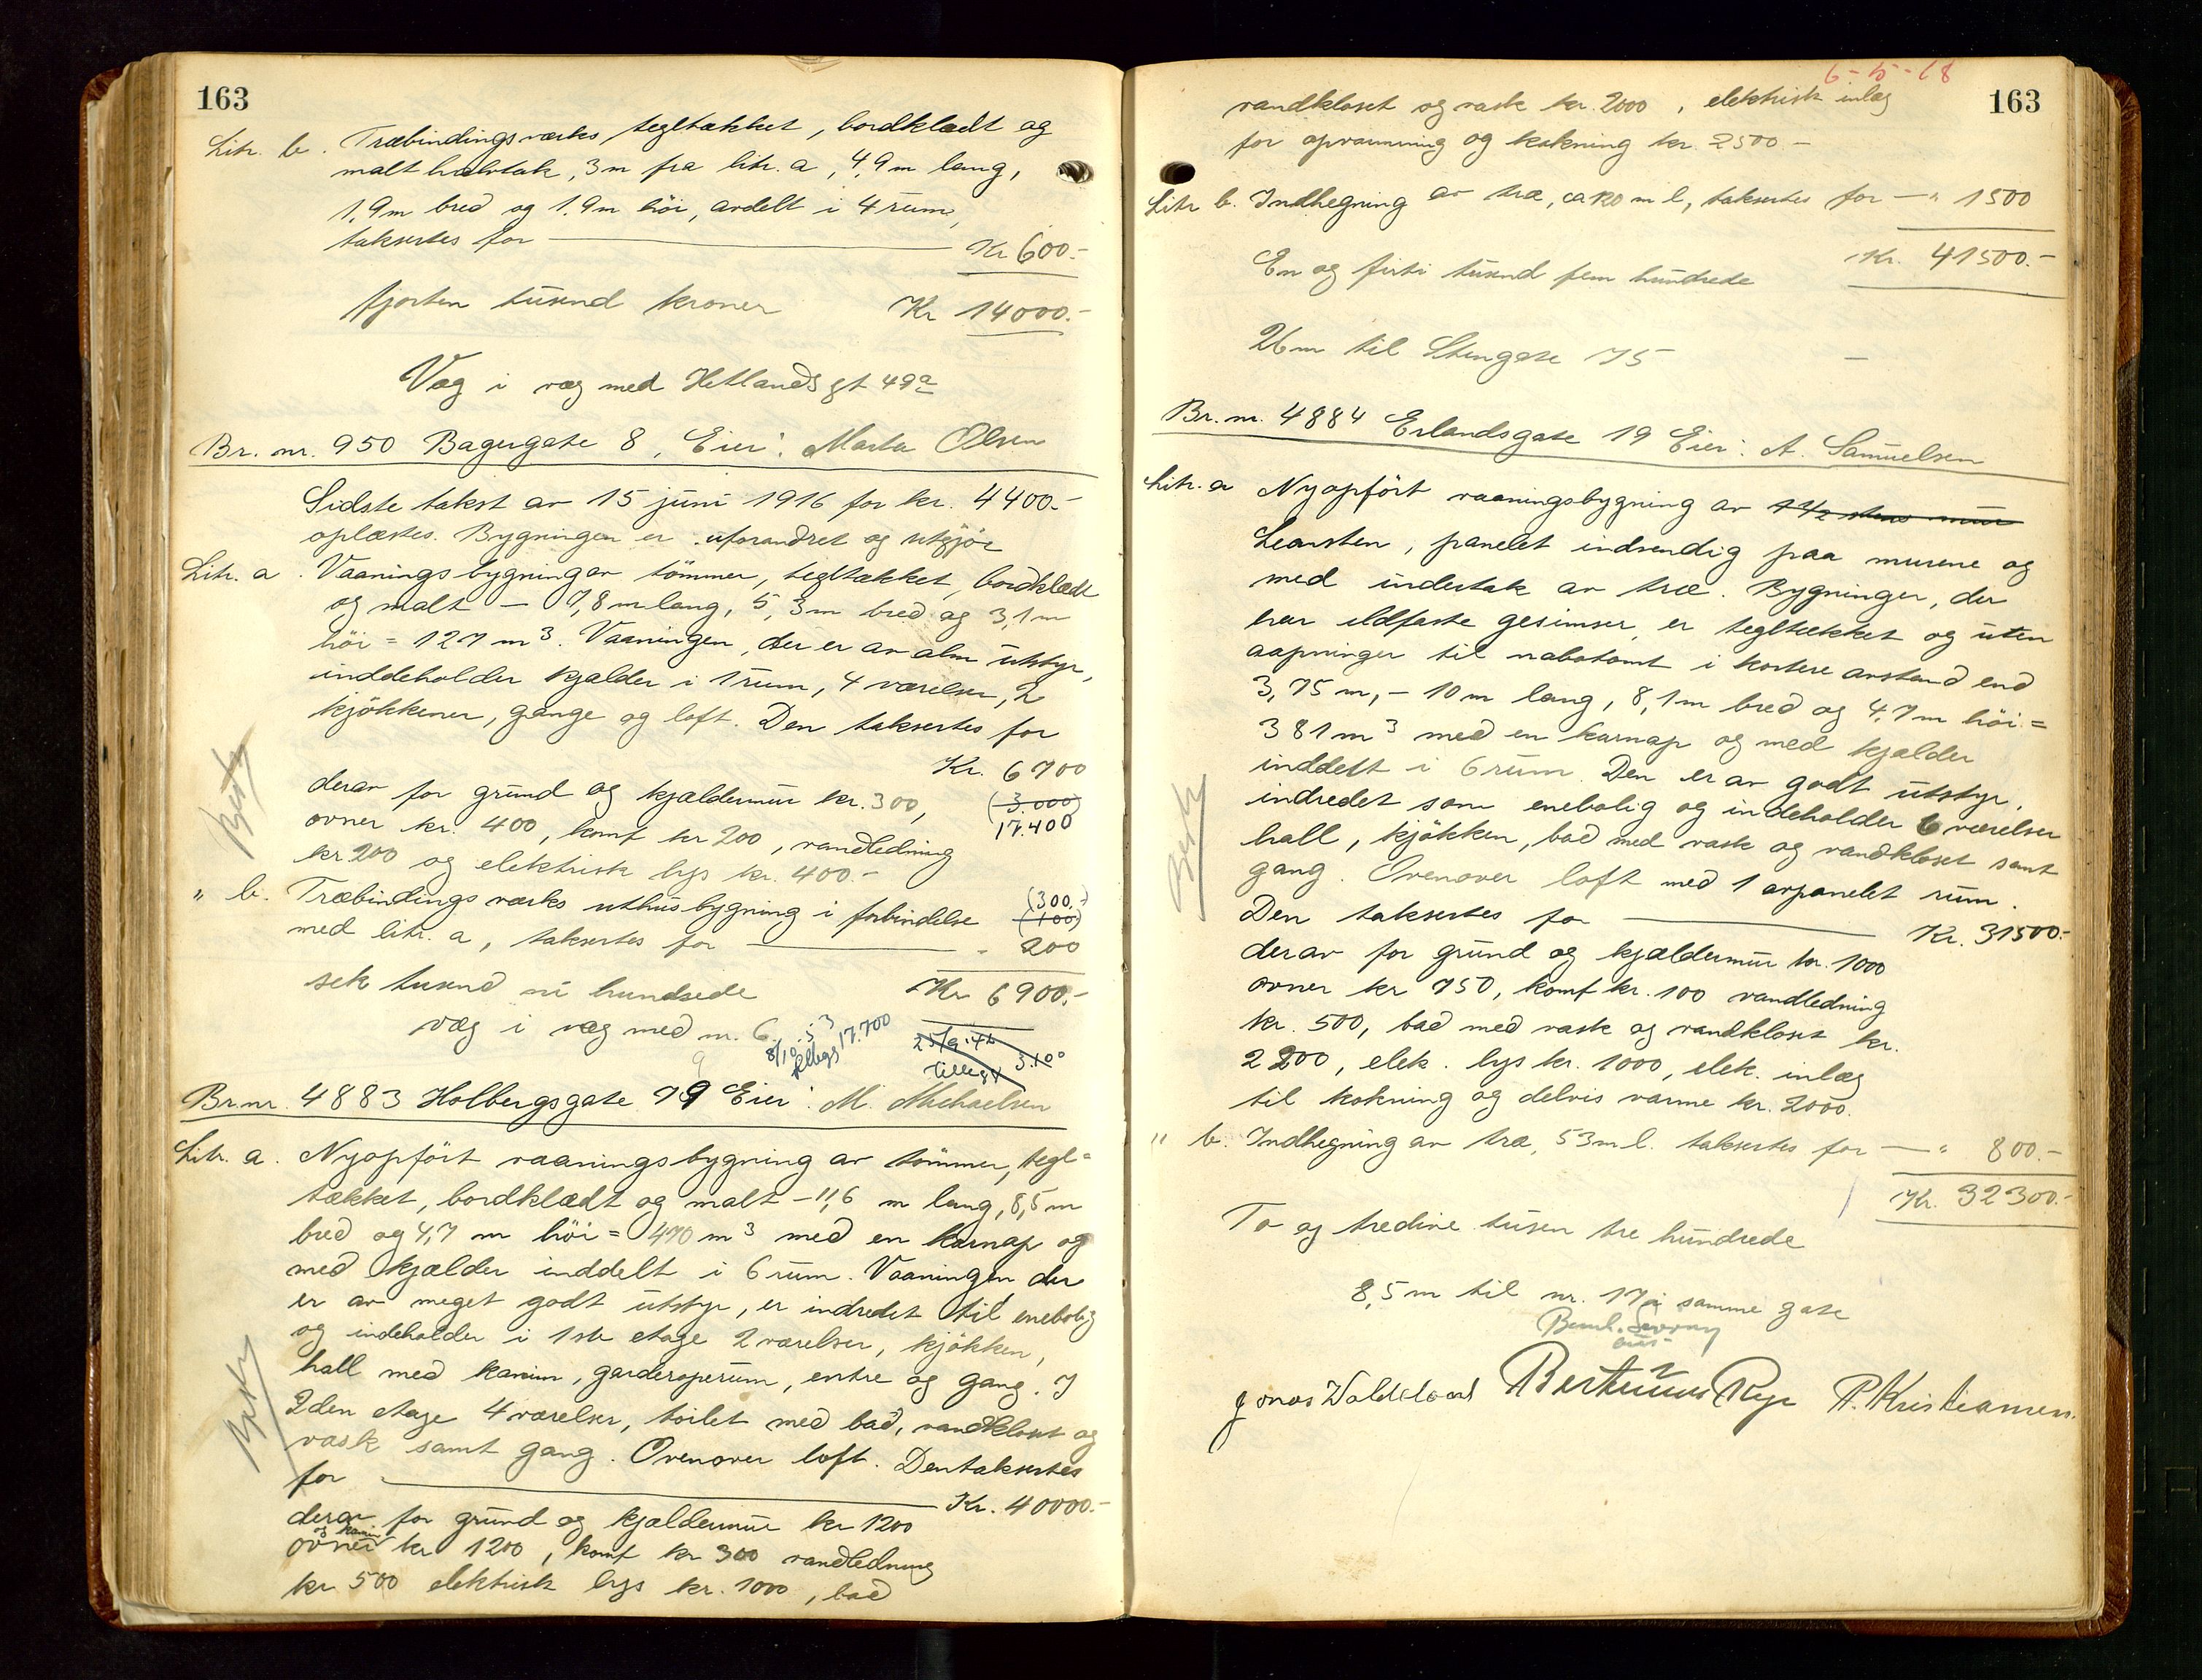 163
Litr. b. Træbindingsværks tegltækket, bordklædt og
malt halvtak, 3m fra litr. a, 4,9m lang,
1,9m bred og 1,9m höi, avdelt i 4 rum,
taksertes for — Kr 600.-
fjorten tusend kroner Kr 14000.-
Væg i væg med Hetlandsgt 49a
Br. nr. 950 Bagergate 8, Eier: Marta Olsen
Sidste takst av 15 juni 1916 for kr. 4400.-
oplæstes. Bygningen er uforandret og utgjör
Litr. a. Vaaningsbygning av tömmer, tegltækket, bordklædt
og malt — 7,8m lang, 5,3m bred og 3,1m
höi = 127 m³. Vaaningen, der er av alm utstyr,
inddeholder kjælder i 1 rum, 4 værelser, 2
kjökkener, gange og loft. Den taksertes for
Kr. 6700
derav for grund og kjældermur kr. 300, (3000)
ovner kr. 400, komf kr 200, vandledning 17.400
kr 200 og elektrisk lys kr. 400.-
" b. Træbindingsværks uthusbygning i forbindelse (300.-) (100)
med litr. a, taksertes for — " 200
seks tusend ni hundrede Kr 6900.-
væg i væg med nr. 6.
8/10.53 17.700
tillegg
25/9.46 3.100
tillegg
9
Br.nr. 4883 Holbergsgate 79 Eier: M. Michaelsen
Litr. a. Nyopfört vaaningsbygning av tömmer, tegl-
tækket, bordklædt og malt — 11,6 m lang, 8,5m
bred og 4,7 m höi = 470 m³ med en karnap og
med kjælder inddelt i 6 rum. Vaaningen der
er av meget godt utstyr, er indredet til enebolig
og indeholder i 1ste etage 2 værelser, kjökken,
hall med kamin, garderoperum, entre og gang. I
2den etage 4 værelser, toilet med bad, vandkloset og
vask samt gang. Ovenover loft. Den taksertes
for — Kr. 40000.-
derav for grund og kjældermur kr 1200
og kamin
ovner kr 1200, komf kr 300 vandledning
kr. 500 elektrisk lys kr. 1000, bad
6-5-68
163
vandkloset og vask kr. 2000, elektrisk inlæg
for opvarmning og kokning kr. 2500.-
Litr b. Indhegning av træ, ca 120 m l, taksertes for — " 1500
Kr. 41500.-
En og firti tusend fem hundrede
26m til Stengate 75
Br. nr. 4884 Erlandsgate 19 Eier: A. Samuelsen
Litr. a Nyopfört vaaningsbygning av 1 1/2 stens mur
Leansten, panelet indvendig paa murene og
med undertak av træ. Bygningen, der
har ildfaste gesimser, er tegltækket og uten
aapninger til nabotomt i kortere avstand end
3,75m, — 10m lang, 8,1m bred og 4,7m höi =
381m³ med en karnap og med kjælder
inddelt i 6 rum. Den er av godt utstyr,
indredet som enebolig og indeholder 6 værelser
hall, kjökken, bad med vask og vandkloset samt
gang. Ovenover loft med 1 avpanelet rum.
Den taksertes for — Kr. 31500.-
derav for grund og kjældermur kr. 1000
ovner kr 750, komf kr. 100 vandledning
kr. 500, bad med vask og vandkloset kr.
2200, elek. lys kr. 1000, elek. inlæg
til kokning og delvis varme kr. 2000.
" b. Indhegning av træ, 53m l. taksertes for — " 800.-
Kr. 32300.-
To og tredive tusen tre hundrede
8,5m til nr. 17 i samme gate
Jonas Bertinius Rege P. Kristiansen.